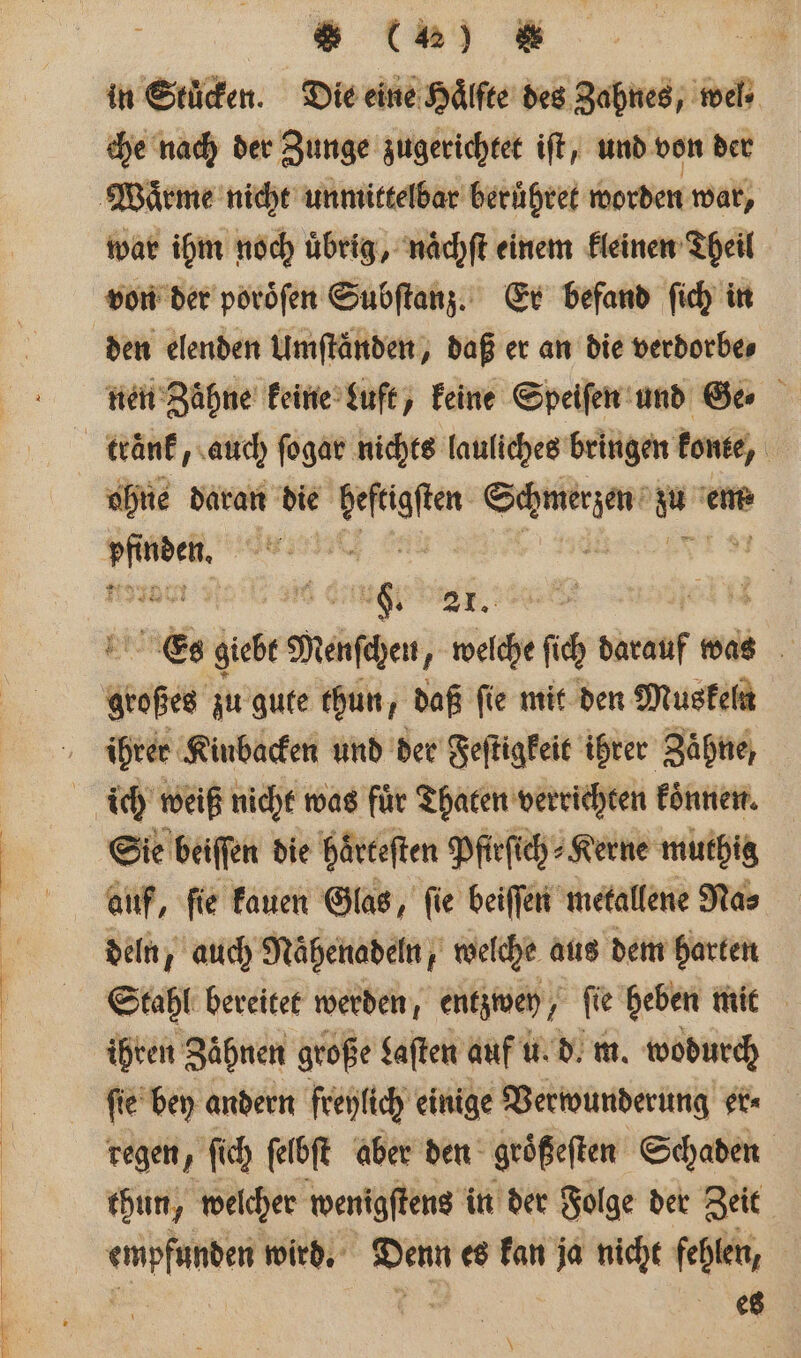 ❀ (42) ❀
in Stuͤcken. Die eine Haͤlfte des Zahnes, wel-
che nach der Zunge zugerichtet iſt, und von der
Waͤrme nicht unmittelbar beruͤhret worden war,
war ihm noch uͤbrig, naͤchſt einem kleinen Theil
von der poroͤſen Subſtanz. Er befand ſich in
den elenden Umſtaͤnden, daß er an die verdorbe-
nen Zaͤhne keine Luft, keine Speiſen und Ge-
traͤnk, auch ſogar nichts lauliches bringen konte,
ohne daran die heftigſten Schmerzen zu em-
pfinden.
§. 21.
Es giebt Menſchen, welche ſich darauf was
großes zu gute thun, daß ſie mit den Muskeln
ihrer Kinbacken und der Feſtigkeit ihrer Zaͤhne,
ich weiß nicht was fuͤr Thaten verrichten koͤnnen.
Sie beiſſen die haͤrteſten Pfirſich-Kerne muthig
auf, ſie kauen Glas, ſie beiſſen metallene Na-
deln, auch Naͤhenadeln, welche aus dem harten
Stahl bereitet werden, entzwey, ſie heben mit
ihren Zaͤhnen große Laſten auf u. d. m. wodurch
ſie bey andern freylich einige Verwunderung er-
regen, ſich ſelbſt aber den groͤßeſten Schaden
thun, welcher wenigſtens in der Folge der Zeit
empfunden wird. Denn es kan ja nicht fehlen,
es